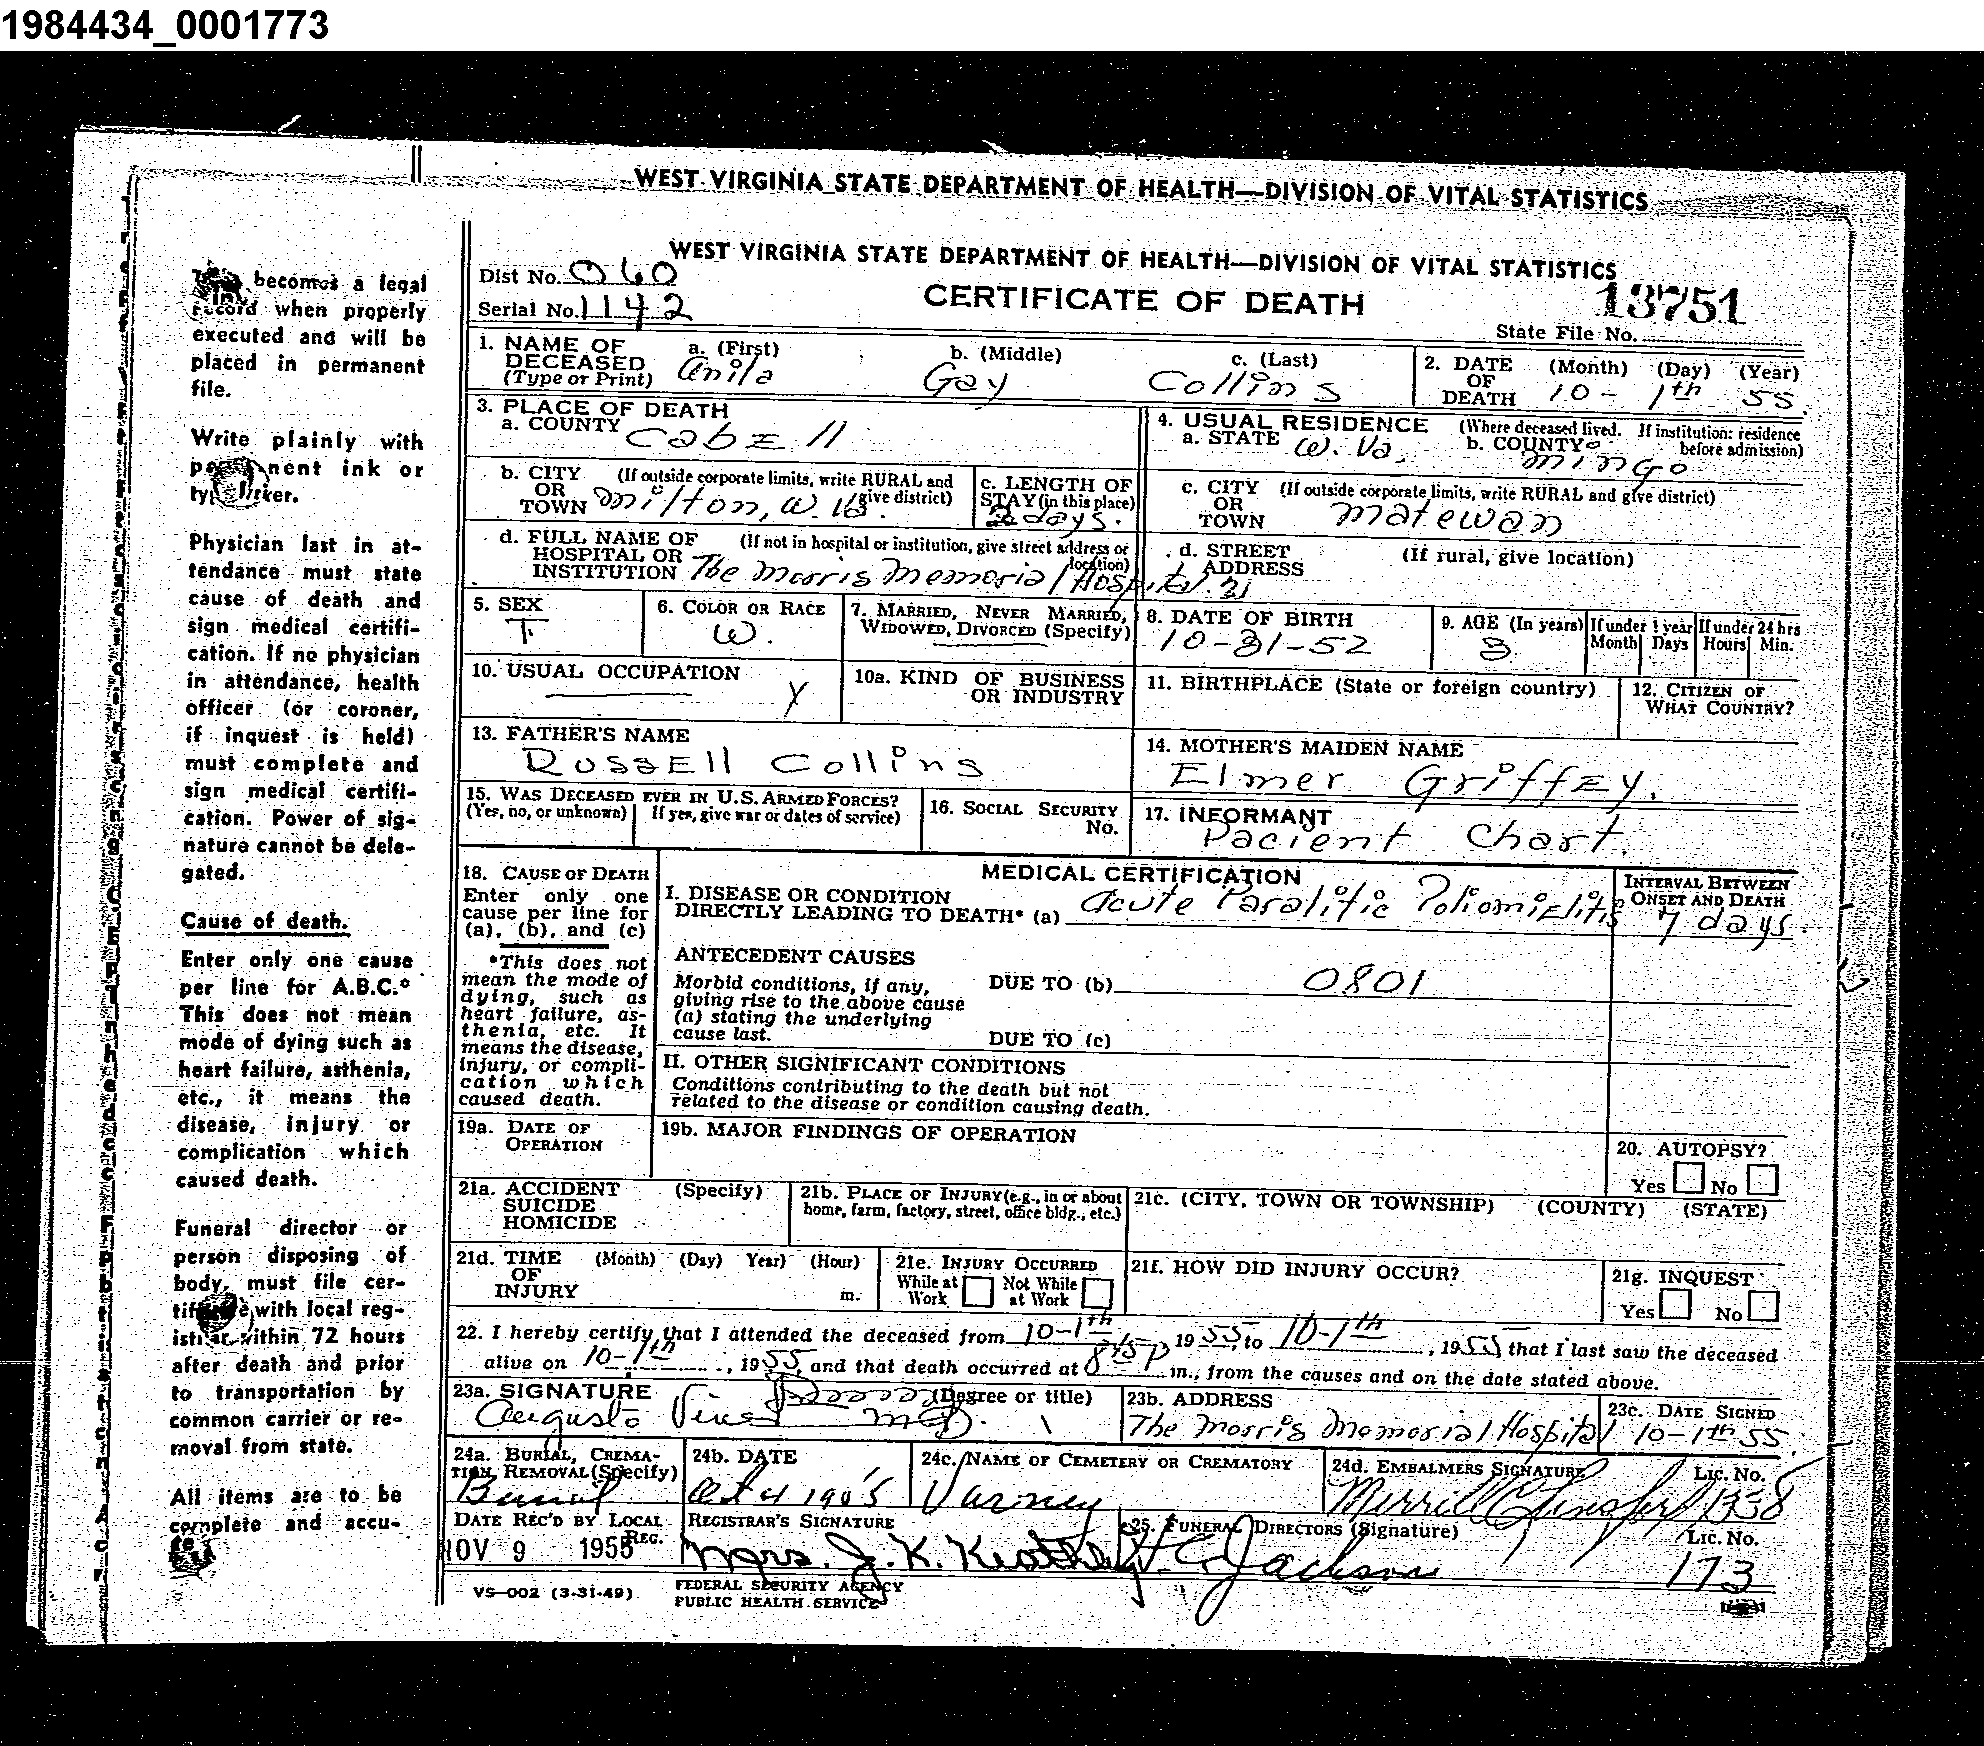 1984434_0001773
WEST VIRGINIA STATE DEPARTMENT OF HEALTH—DIVISION OF VITAL STATISTICS
WEST VIRGINIA STATE DEPARTMENT OF HEALTH—DIVISION OF VITAL STATISTICS
Dist No. 060
Serial No. 1142
CERTIFICATE OF DEATH
13751
State File No.
becomes a legal
record when properly
executed and will be
placed in permanent
file.
Write plainly with
permanent ink or
Physician last in at-
tendance must state
cause of death and
sign medical certifi-
cation. If no physician
in attendance, health
officer (or coroner,
if inquest is held)
must complete and
sign medical certifi-
cation. Power of sig-
nature cannot be dele-
gated.
Cause of death.
Enter only one cause
per line for A.B.C.*
This does not mean
mode of dying such as
heart failure, asthenia,
etc., it means the
disease, injury or
complication which
caused death.
Funeral director or
person disposing of
body, must file cer-
tificate with local reg-
istrar within 72 hours
after death and prior
to transportation by
common carrier or re-
moval from state.
All items are to be
complete and accu-
1. NAME OF DECEASED (Type or Print) a. (First) Anita b. (Middle) Gay c. (Last) Collins
2. DATE OF DEATH (Month) (Day) (Year) 10 - 1th 55
3. PLACE OF DEATH
a. COUNTY CabEll
4. USUAL RESIDENCE (Where deceased lived. If institution: residence before admission)
a. STATE W. Va. b. COUNTY Mingo
b. CITY OR TOWN (If outside corporate limits, write RURAL and give district) Milton, W. Va.
c. LENGTH OF STAY (in this place) 2 days.
c. CITY OR TOWN (If outside corporate limits, write RURAL and give district) Matewan
d. FULL NAME OF HOSPITAL OR INSTITUTION (If not in hospital or institution, give street address or location) The Morris Memorial Hospital.
d. STREET ADDRESS (If rural, give location)
5. SEX F
6. COLOR OR RACE W.
7. MARRIED, NEVER MARRIED, WIDOWED, DIVORCED (Specify)
8. DATE OF BIRTH 10-31-52
9. AGE (In years) 3 If under 1 year Month Days If under 24 hrs Hours Min.
10. USUAL OCCUPATION
10a. KIND OF BUSINESS OR INDUSTRY
11. BIRTHPLACE (State or foreign country)
12. CITIZEN OF WHAT COUNTRY?
13. FATHER'S NAME
RussEll Collins
14. MOTHER'S MAIDEN NAME
Elmer GriffEy.
15. WAS DECEASED EVER IN U.S. ARMED FORCES?
(Yes, no, or unknown) If yes, give war or dates of service)
16. SOCIAL SECURITY No.
17. INFORMANT
Pacient Chart.
18. CAUSE OF DEATH
Enter only one
cause per line for
(a), (b), and (c)
*This does not
mean the mode of
dying, such as
heart failure, as-
thenia, etc. It
means the disease,
injury, or compli-
cation which
caused death.
MEDICAL CERTIFICATION
I. DISEASE OR CONDITION
DIRECTLY LEADING TO DEATH* (a) Acute Paralitic PoliomiElitis
INTERVAL BETWEEN ONSET AND DEATH
7 days
ANTECEDENT CAUSES
Morbid conditions, if any,
giving rise to the above cause
(a) stating the underlying
cause last.
DUE TO (b) 0801
DUE TO (c)
II. OTHER SIGNIFICANT CONDITIONS
Conditions contributing to the death but not
related to the disease or condition causing death.
19a. DATE OF OPERATION
19b. MAJOR FINDINGS OF OPERATION
20. AUTOPSY?
Yes No
21a. ACCIDENT SUICIDE HOMICIDE (Specify)
21b. PLACE OF INJURY (e.g., in or about home, farm, factory, street, office bldg., etc.)
21c. (CITY, TOWN OR TOWNSHIP) (COUNTY) (STATE)
21d. TIME OF INJURY (Month) (Day) Year) (Hour) m.
21e. INJURY OCCURRED
While at Work Not While at Work
21f. HOW DID INJURY OCCUR?
21g. INQUEST
Yes No
22. I hereby certify that I attended the deceased from 10-1th 1955, to 10-1th, 1955 that I last saw the deceased
alive on 10-1th, 1955, and that death occurred at 845P m., from the causes and on the date stated above.
23a. SIGNATURE (Degree or title)
Augusto MD.
23b. ADDRESS
The Morris Memorial Hospital
23c. DATE SIGNED
10-1th 55.
24a. BURIAL, CREMATION, REMOVAL (Specify)
Burial
24b. DATE
Oct 4 1955
24c. NAME OF CEMETERY OR CREMATORY
Varney
24d. EMBALMERS SIGNATURE Lic. No.
Merrill 1358
DATE REC'D BY LOCAL REG.
NOV 9 1955
REGISTRAR'S SIGNATURE
Mrs. J. K.
25. FUNERAL DIRECTORS (Signature) Lic. No.
Jackson 173
VS-002 (3-31-49)
FEDERAL SECURITY AGENCY
PUBLIC HEALTH SERVICE